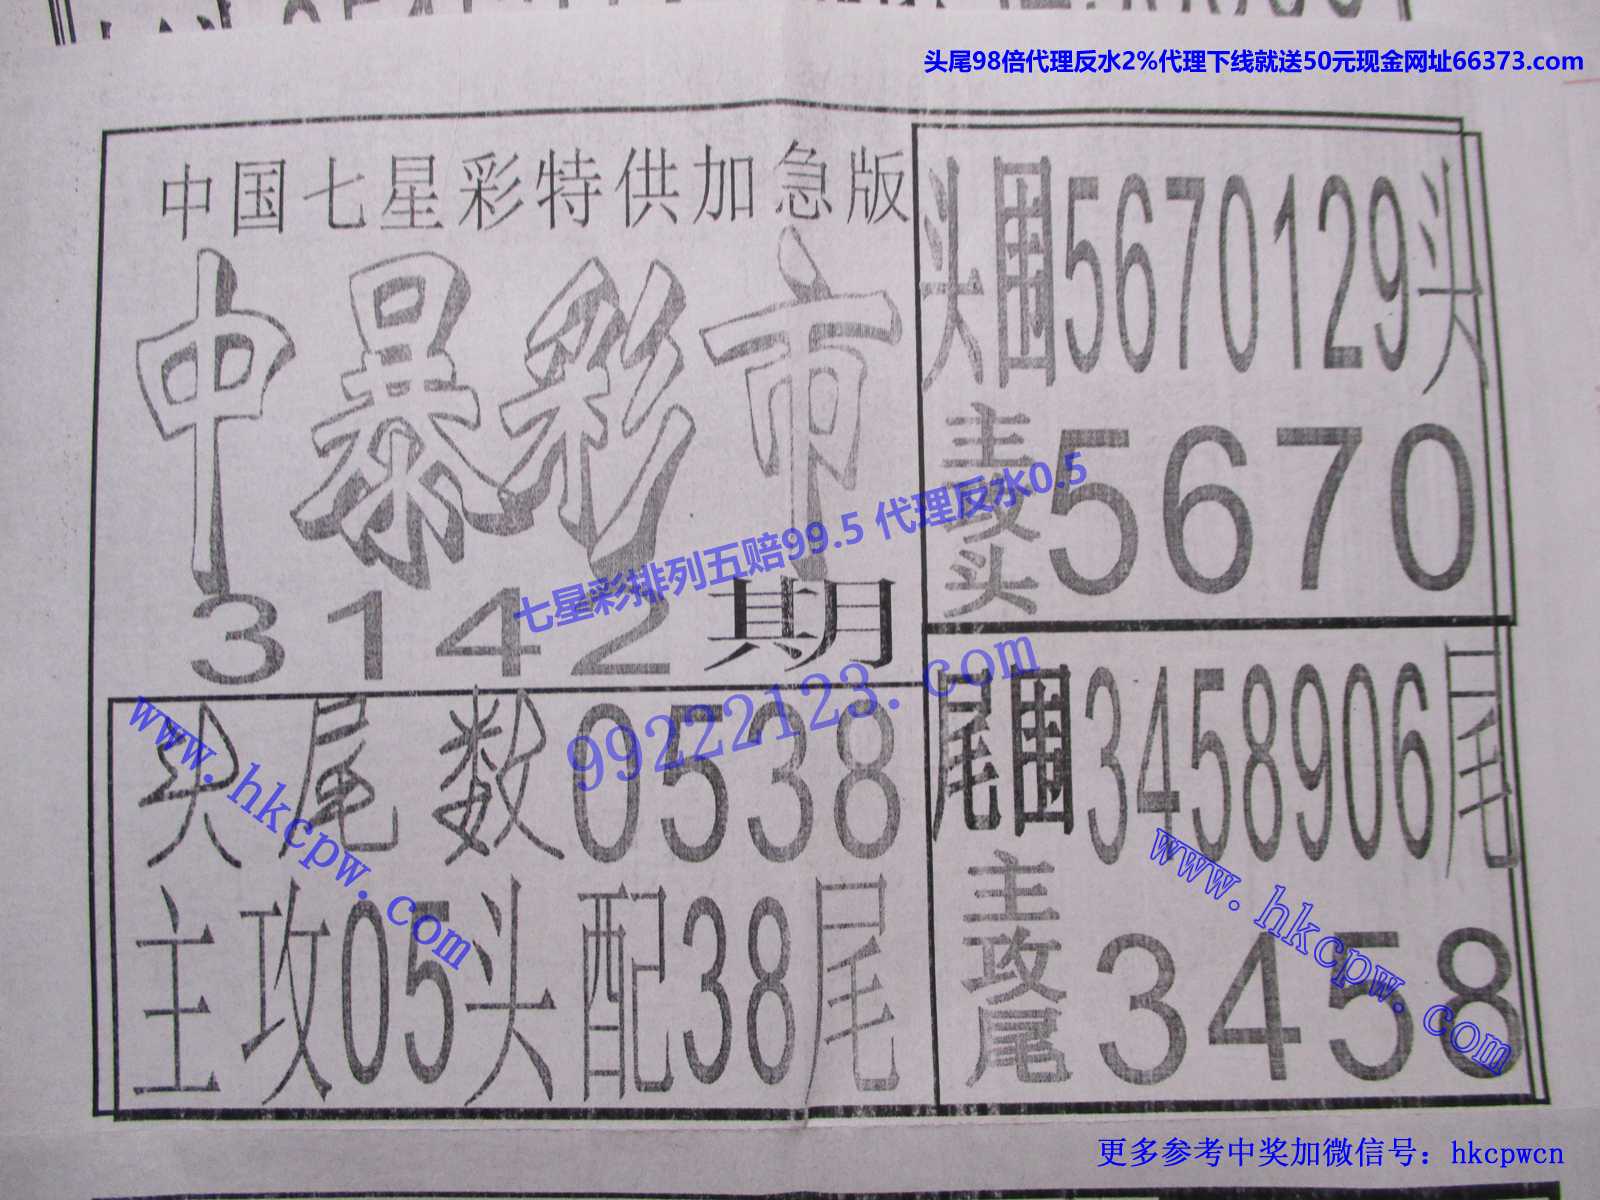 头尾98倍代理反水2%代理下线就送50元现金网址66373.com
中国七星彩特供加急版
中暴彩市
3142期
头尾数0538
主攻05头配38尾
头围5670129头
主攻头5670
尾围3458906尾
主攻尾3458
七星彩排列五赔99.5 代理反水0.5
99222123.com
www.hkcpw.com
www.hkcpw.com
更多参考中奖加微信号：hkcpwcn